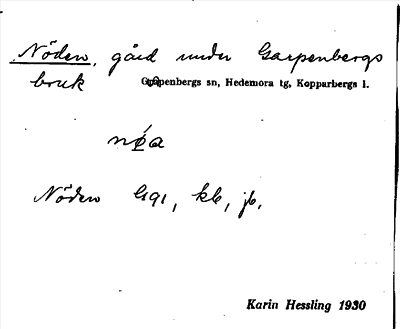 Nöden, gård under Garpenbergs
bruk Garpenbergs sn, Hedemora tg, Kopparbergs l.
Nöden GÄ91, kb, jb.
Karin Hessling 1930